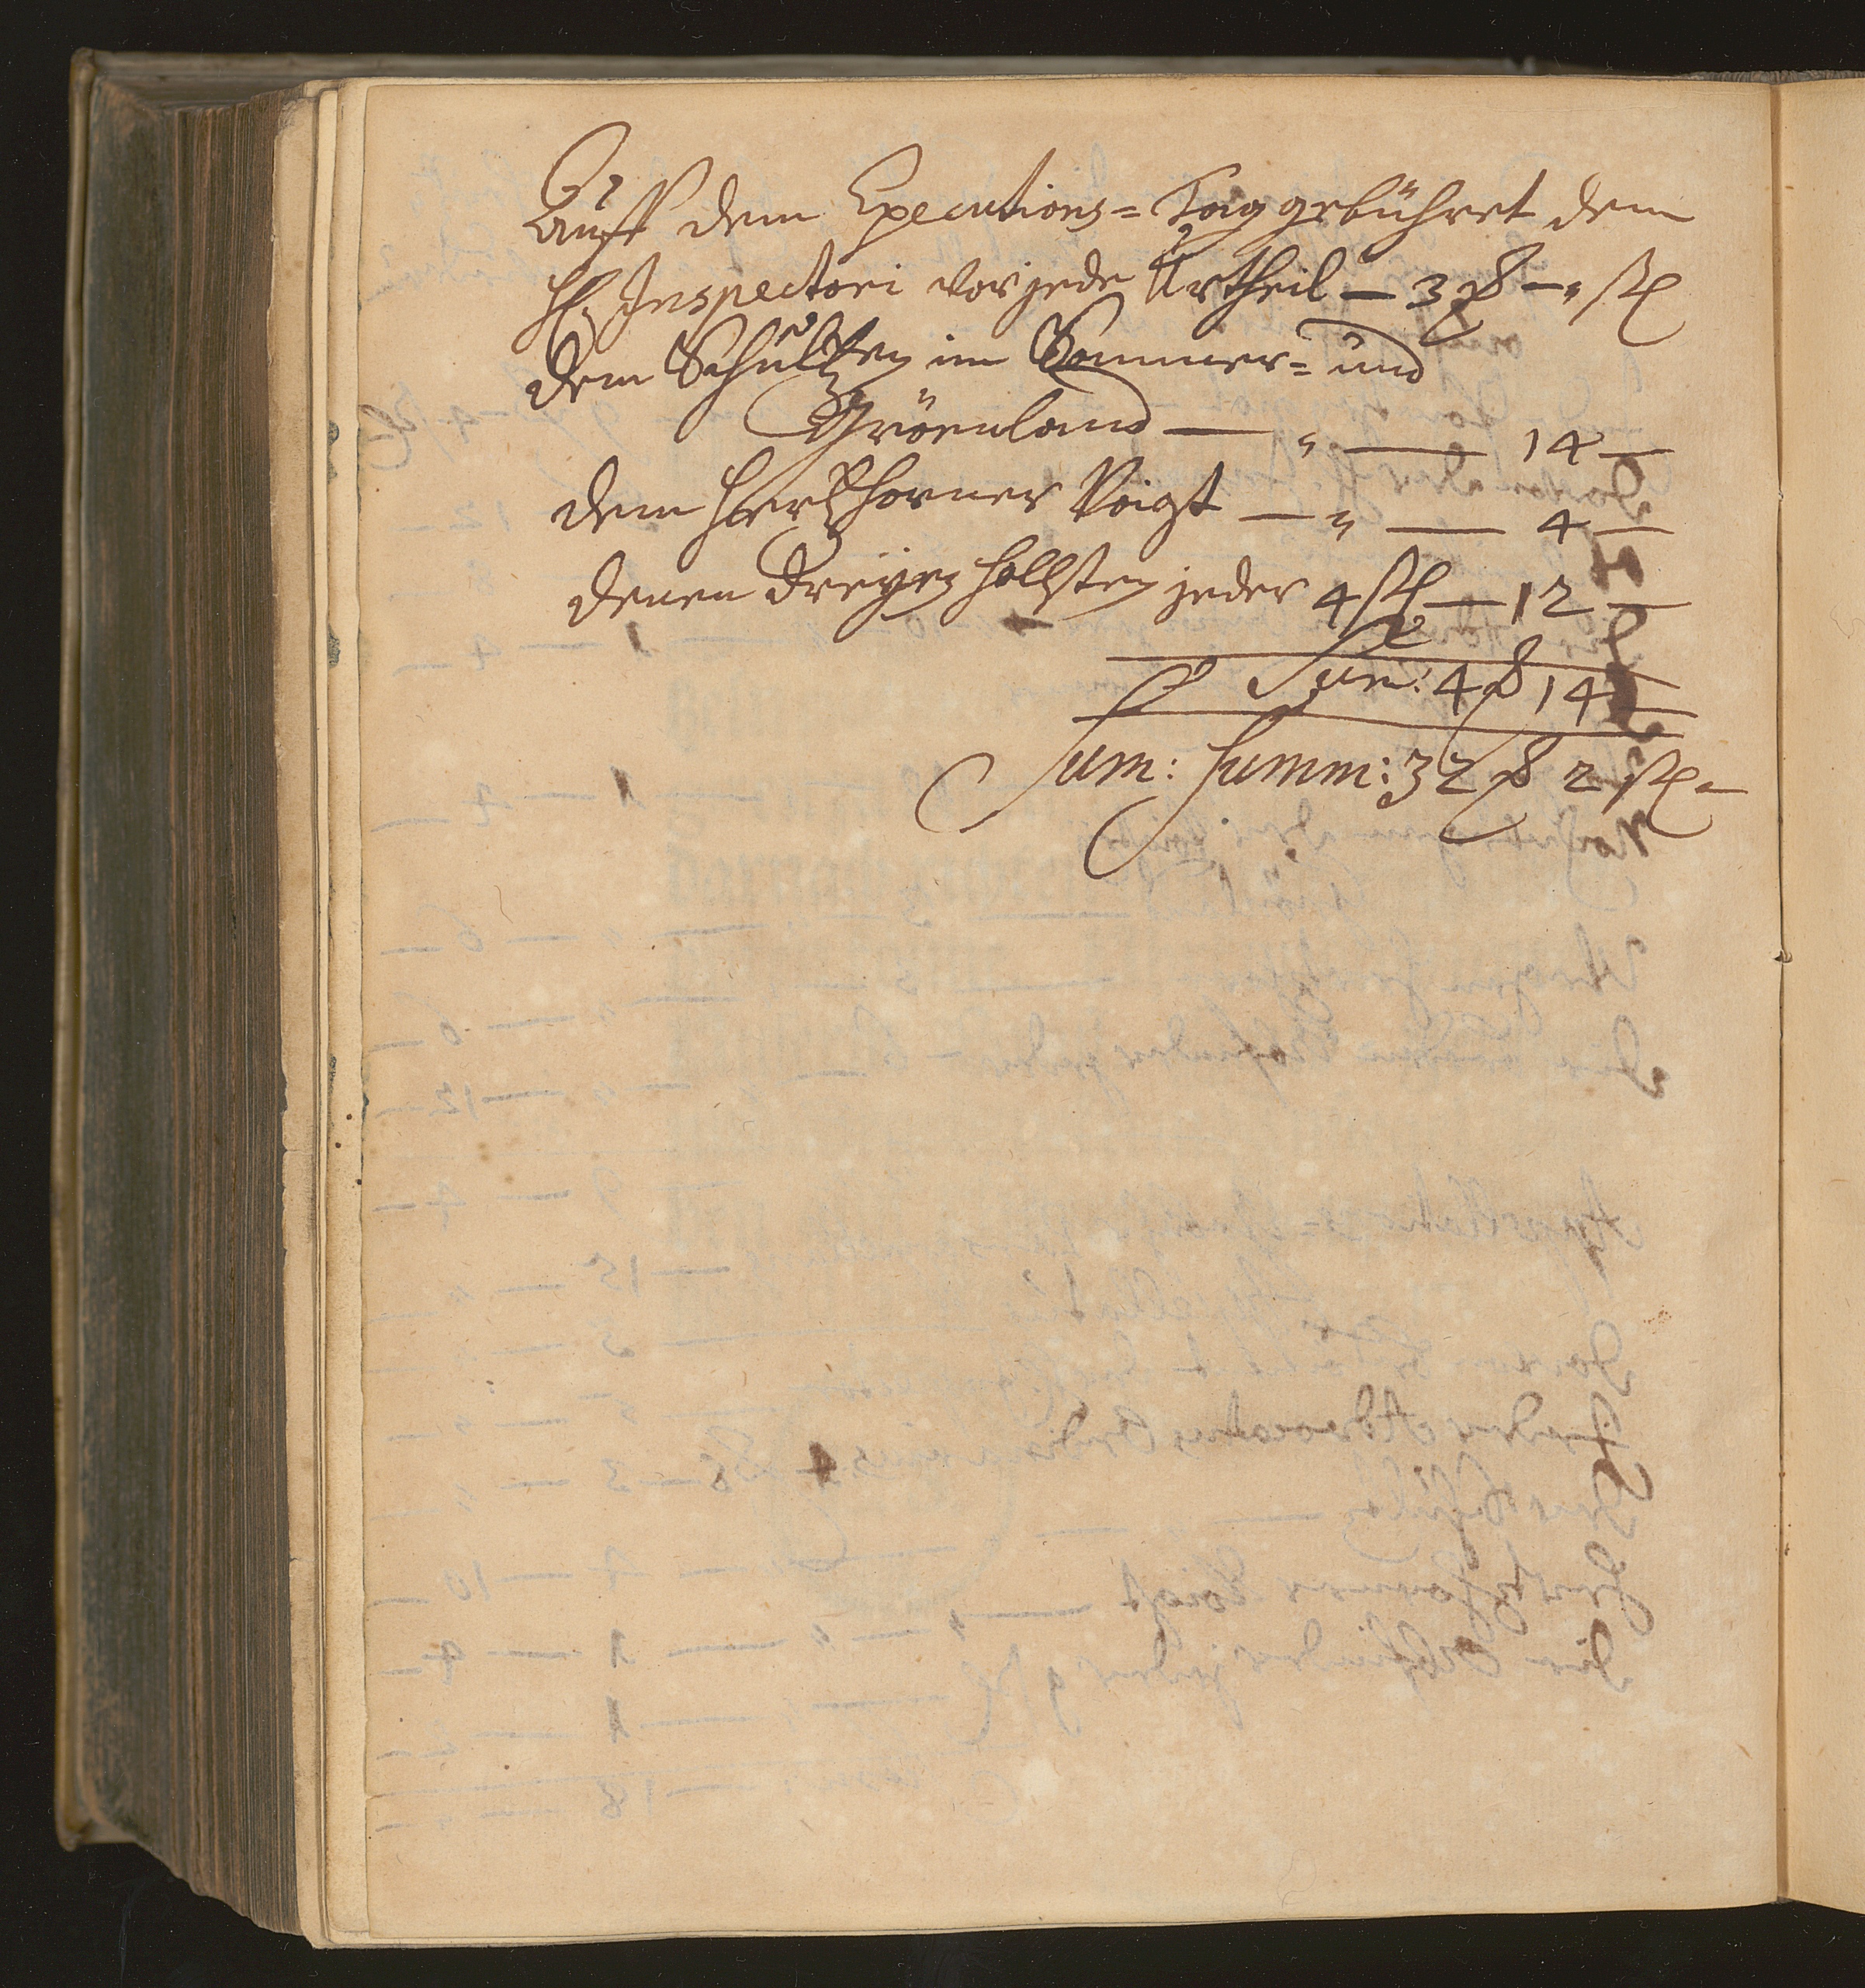 Auff dem Executions= Tag gebühret dem
H. Inspectori vor jede Urtheil — 3 ₰ — „ ßl
dem Schultzen im Sommer= und
Gröenland — „ — 14 —
dem Hertzhorner Voigt — „ — 4 —
denen dreyen Hollsten jeder 4 ßl — 12 —
Sum: 4 ₰ 14
Sum: Summ: 32 ₰ 2 ßl